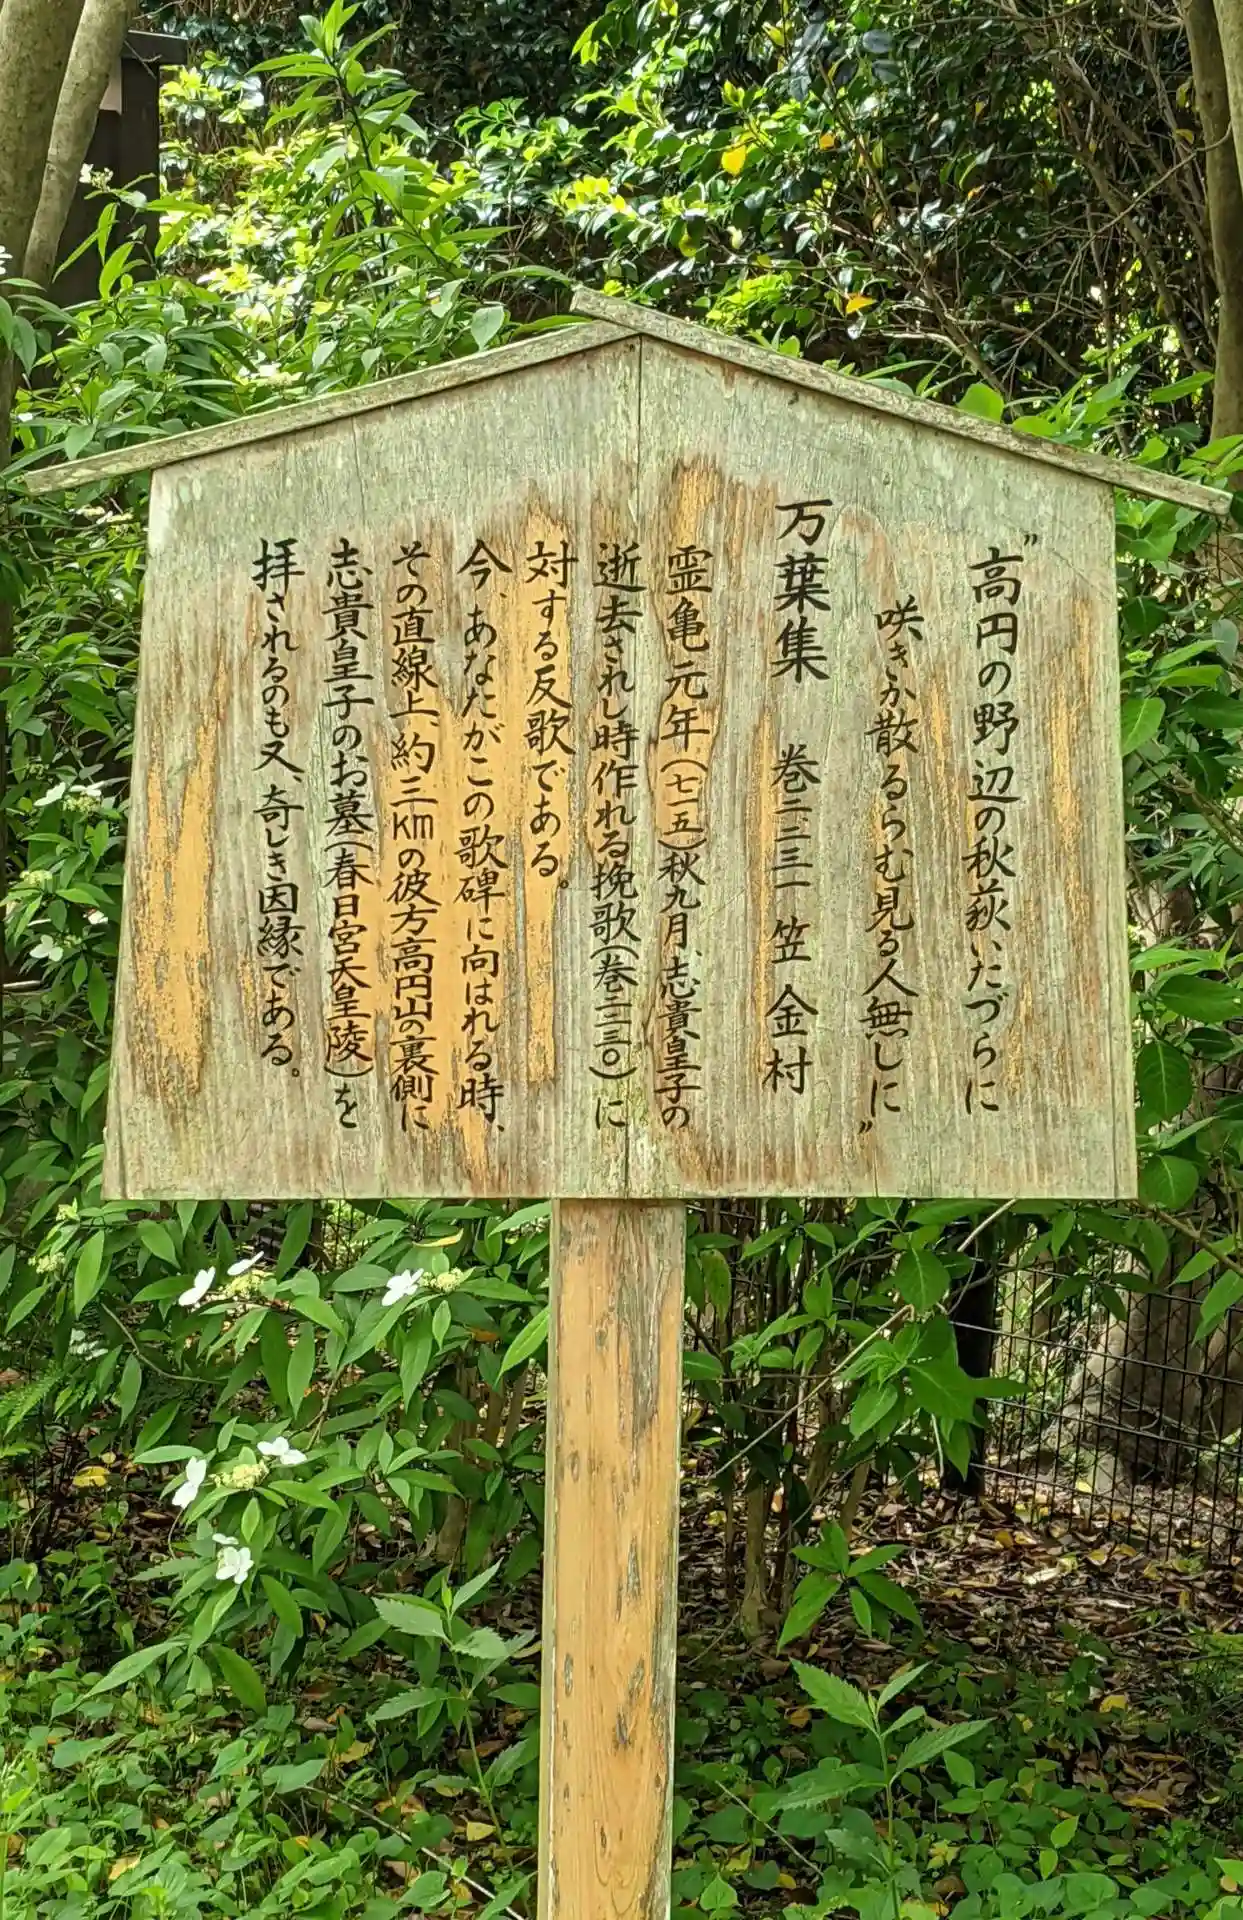 "高円の野辺の秋萩いたづらに
咲きか散るらむ見る人無しに"
万葉集 巻二、二三一 笠 金村
霊亀元年(七一五)秋九月、志貴皇子の
逝去されし時作れる挽歌(巻二、二三〇)に
対する反歌である。
今、あなたがこの歌碑に向はれる時、
その直線上、約三kmの彼方高円山の裏側に
志貴皇子のお墓(春日宮天皇陵)を
拝されるのも又、奇しき因縁である。